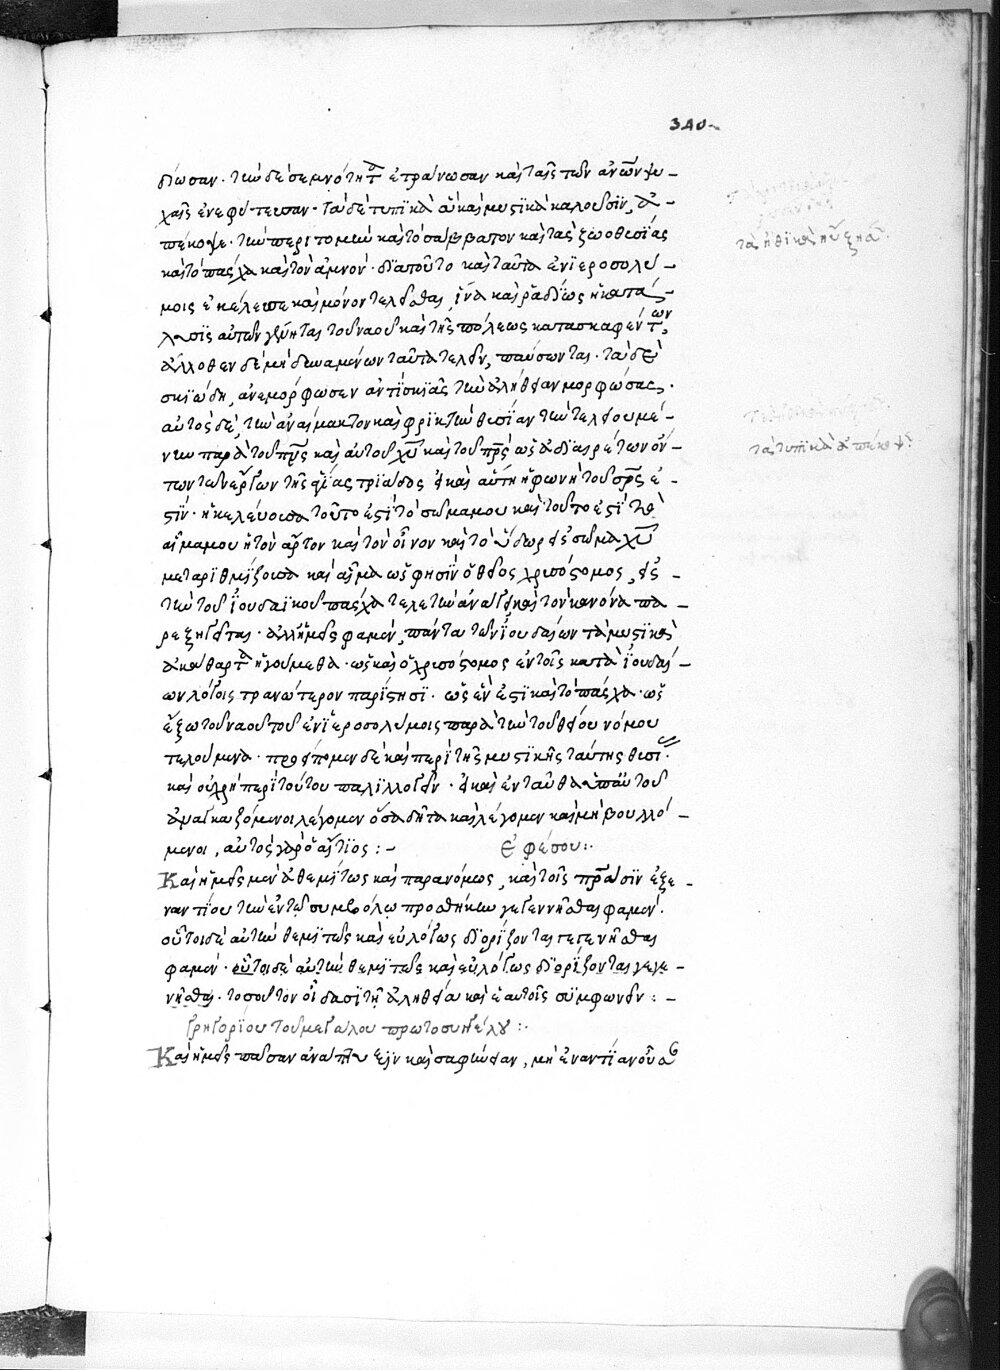 340
δίωσαν· τὴν δὲ σεμνότητα ἐτράνωσαν καὶ ταῖς τῶν ἀνων ψυ-
χαῖς ἐνεφύτευσαν· τὰ δὲ τυπικὰ ἃ καὶ μυστικὰ καλοῦσιν, ἀ-
πέκοψε· τὴν περιτομὴν καὶ τὸ σάββατον καὶ τὰς ζωοθυσίας
καὶ τὸ πάσχα καὶ τὸν ἀμνόν· διαποῦτο καὶ ταῦτα ἐν ἱεροσολύ-
μοις ἐκέλευσε καὶ μόνον τελεῖσθαι, ἵνα καὶ ῥαδίως ἡ κατά-
λυσις αὐτῶν γένηται τοῦ ναοῦ καὶ τῆς πόλεως κατασκαφέντων,
ἄλλοθεν δὲ μὴ δυναμένων ταῦτα τελεῖν, παύσονται· τὰ δὲ
σκιώδη, ἀνεμόρφωσεν ἀντὶ σκιᾶς τὴν ἀλήθειαν μορφώσας·
αὐτὸς δὲ, τὴν ἀναίμακτον καὶ φρικτὴν θυσίαν τὴν τελειουμέ-
νην παρὰ τοῦ πρς καὶ αὐτοῦ χυ καὶ τοῦ πνς ὡς ἀδιαιρέτων ὄν-
των τῶν ἔργων τῆς ἁγίας τριάδος καὶ αὕτη ἡ φωνὴ τοῦ σρς ἐ-
στιν· ἡ κελεύουσα τοῦτο ἐστὶ τὸ σῶμα μου καὶ τοῦτο ἐστὶ τὸ
αἷμα μου ἢ τὸν ἄρτον καὶ τὸν οἶνον καὶ τὸ ὕδωρ εἰς σῶμα χυ
μεταρυθμίζουσα καὶ αἷμα ὥς φησιν ὁ θεῖος χρυσόστομος, εἰς
τὴν τοῦ ἰουδαϊκοῦ πάσχα τελετὴν ἀναγ καὶ τὸν κανόνα πα-
ρεξηγεῖται· ἀλλ' ἡμεῖς φαμὲν, πάντα τῶν ἰουδαίων τὰ μυστικὰ
ἀκάθαρτα ἡγούμεθα· ὡς καὶ ὁ χρυσόστομος ἐν τοῖς κατὰ ἰουδαί-
ων λόγοις τρανώτερον παρίστησι· ὡς ἕν ἐστι καὶ τὸ πάσχα· ὡς
ἔξω τοῦ ναοῦ τοῦ ἐν ἱεροσολύμοις παρὰ τὴν τοῦ θείου νόμου
τελούμενα· προείπομεν δὲ καὶ περὶ τῆς μυστικῆς ταύτης θυσίας
καὶ οὐ χρὴ περὶ τούτου παλιλλογεῖν· καὶ ἐνταῦθα ὑπ' αὐτοῦ
ἀναγκαζόμενοι λέγομεν ὅσα δῆτα καὶ λέγομεν καὶ μὴ βουλό-
μενοι, αὐτὸς γὰρ ὁ αἴτιος :- Ἐφέσου :.
Καὶ ἡμεῖς μὲν ἀθεμίτως καὶ παρανόμως, καὶ τοῖς πράσιν ἐξε-
ναντίου τὴν ἐν τῶ συμβόλω προσθήκην γεγεννῆσθαι φαμέν·
οὗτοι δὲ αὐτὴν θεμιτῶς καὶ εὐλόγως διορίζονται γεγενῆσθαι
φαμέν· οὗτοι δὲ αὐτὴν θεμιτῶς καὶ εὐλόγως διορίζονται γεγε-
νῆσθαι· τοσοῦτον οἴδασι τῆ ἀληθεία καὶ ἑαυτοῖς συμφωνεῖν : -
Γρηγορίου τοῦ μεγάλου πρωτοσυγγέλου :.
Καὶ ἡμεῖς πᾶσαν ἀνάπτυξιν καὶ σαφήνειαν, μὴ ἐναντίαν οὖσαν
τὰ ἠθικὰ ηὔξησ.
τὰ τυπικὰ ἀπέκοψε